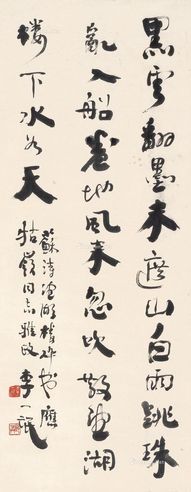 黑雲翻墨未遮山白雨跳珠
亂入船卷地風來忽吹散望湖
樓下水如天
蘇詩望湖樓書應
牯嶺同志雅政 李一氓